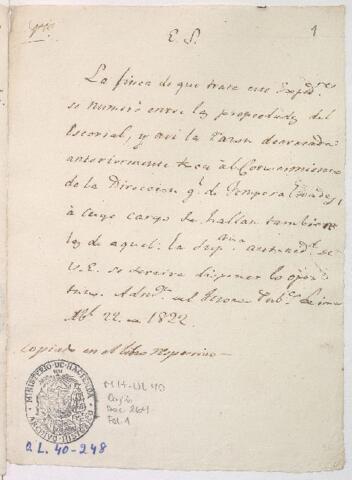 E. S.
1
La finca de que trata este Exped.te
se numeró entre las propiedades del
Escorial, y así la razon
anteriormente toca al Conocimiento
de la Direccion g.l de Temporalidades,
à cuyo cargo se hallan tambien
las de aquel: la Sup.
V.E. se servirá disponer lo opor-
tuno. Adm.on del Tesoro Pub.co Lima
22 1822
Copiado en el libro respectivo
MINISTERIO DE HACIENDA
MH-OL 40
Caja
Doc. 264
Fol. 1
O.L. 40-248